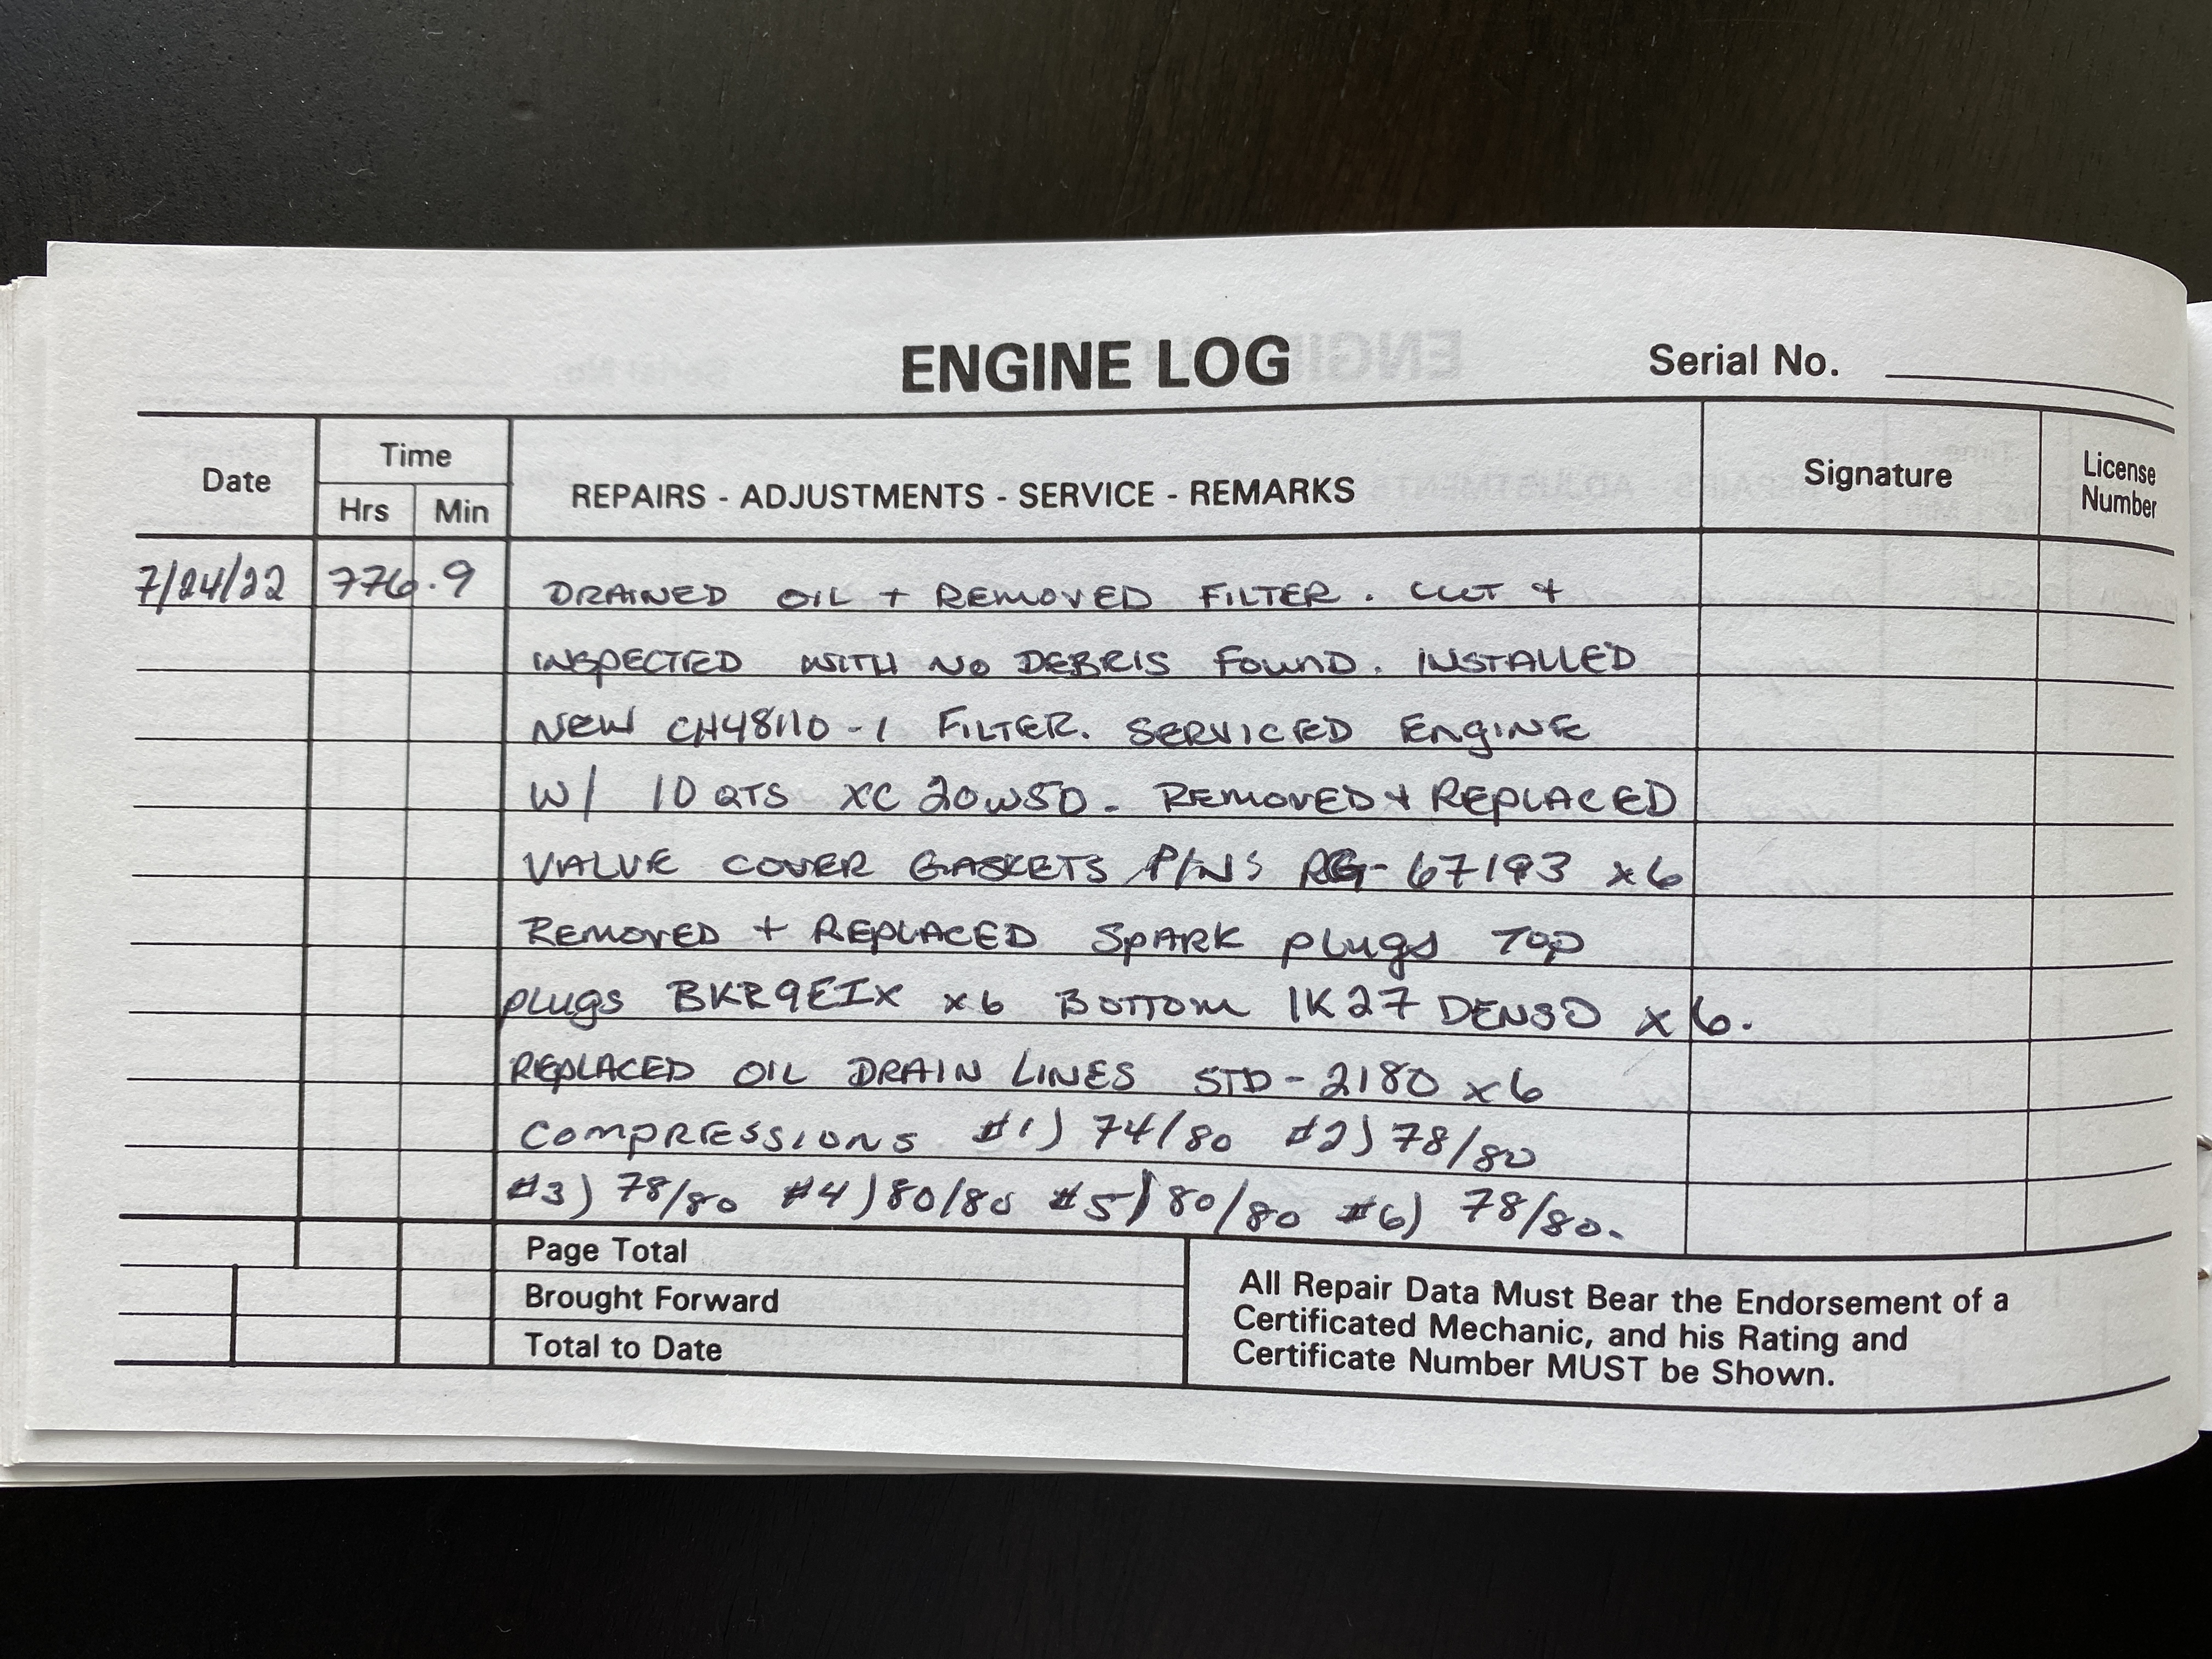 ENGINE LOG
Serial No.
Date
Time
Hrs Min
REPAIRS - ADJUSTMENTS - SERVICE - REMARKS
Signature
License
Number
7/24/22 776.9 DRAINED OIL + REMOVED FILTER. CUT +
INSPECTED WITH NO DEBRIS FOUND. INSTALLED
NEW CH48110-1 FILTER. SERVICED ENGINE
W/ 10 QTS XC 20W50. REMOVED + REPLACED
VALVE COVER GASKETS P/N'S RG-67193 x6
REMOVED + REPLACED SPARK plugs TOP
plugs BKR9EIX x6 BOTTOM IK27 DENSO x6.
REPLACED OIL DRAIN LINES STD-2180 x6
COMPRESSIONS #1) 74/80 #2) 78/80
#3) 78/80 #4) 80/80 #5) 80/80 #6) 78/80.
Page Total
Brought Forward
Total to Date
All Repair Data Must Bear the Endorsement of a
Certificated Mechanic, and his Rating and
Certificate Number MUST be Shown.